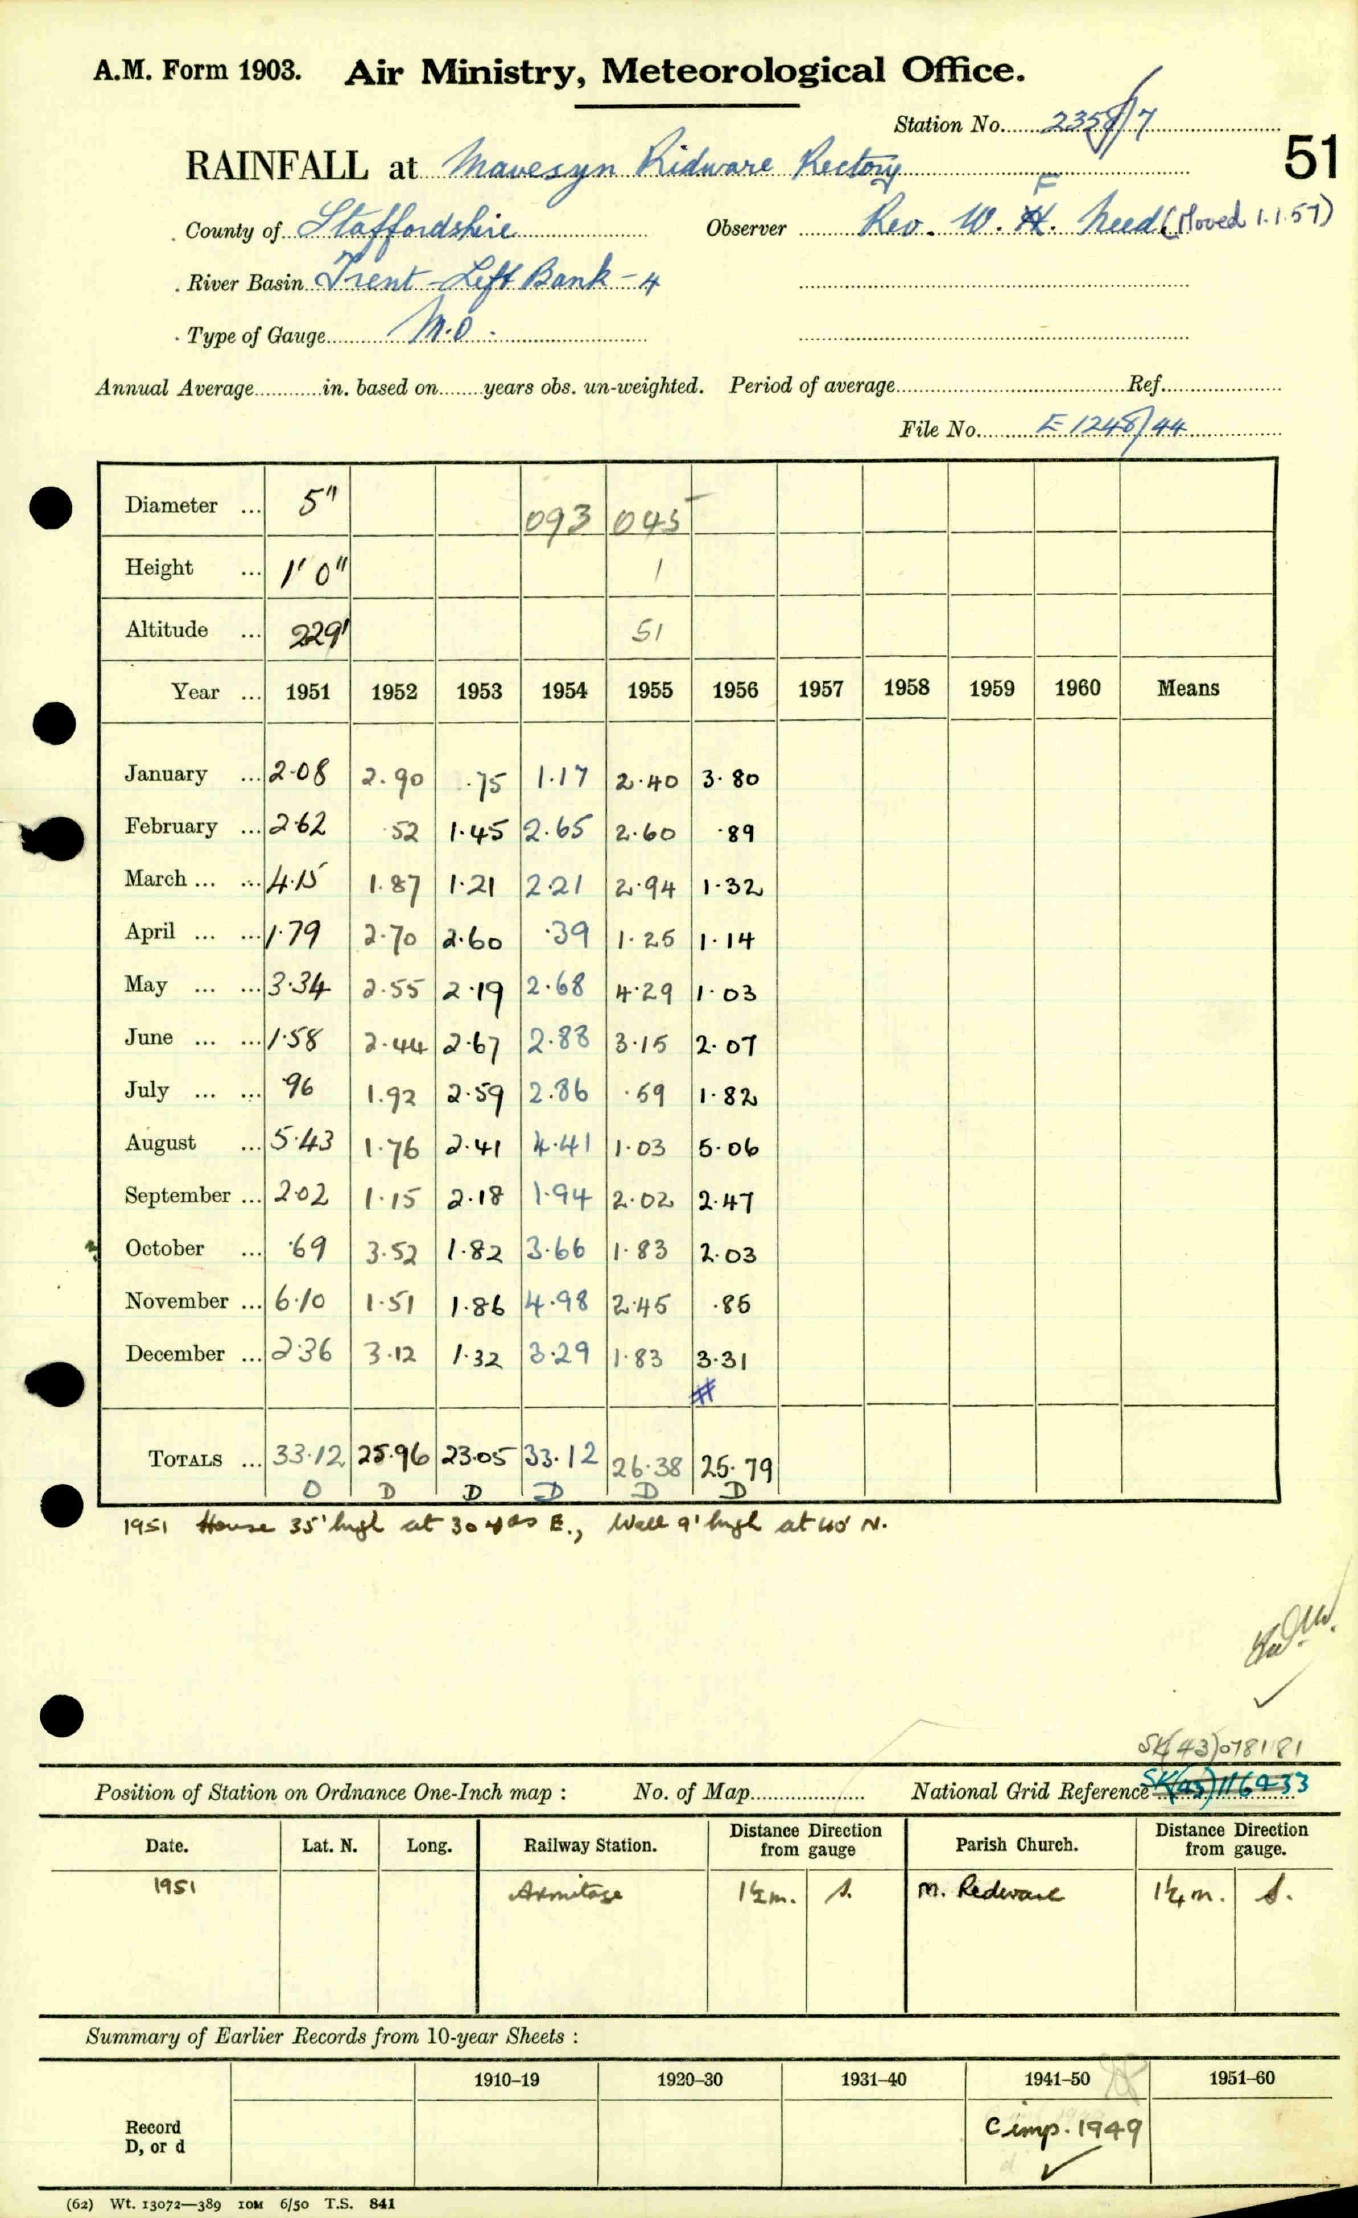 A.M. Form 1903. Air Ministry, Meteorological Office.
Station No. 2358/7
51
RAINFALL at Mavesyn Ridware Rectory
County of Staffordshire Observer Rev. W. F. Need (Moved 1.1.57)
River Basin Trent - Left Bank - 4
Type of Gauge M.O.
Annual Average in. based on years obs. un-weighted. Period of average Ref.
File No. E 1248/44
Diameter 5" 093 045
Height 1' 0" 1
Altitude 229' 51
Year 1951 1952 1953 1954 1955 1956 1957 1958 1959 1960 Means
January 2.08 2.90 .75 1.17 2.40 3.80
February 2.62 .52 1.45 2.65 2.60 .89
March 4.15 1.87 1.21 2.21 2.94 1.32
April 1.79 2.70 2.60 .39 1.25 1.14
May 3.34 2.55 2.19 2.68 4.29 1.03
June 1.58 2.44 2.67 2.88 3.15 2.07
July .96 1.92 2.59 2.86 .59 1.82
August 5.43 1.76 2.41 4.41 1.03 5.06
September 2.02 1.15 2.18 1.94 2.02 2.47
October .69 3.52 1.82 3.66 1.83 2.03
November 6.10 1.51 1.86 4.98 2.45 .85
December 2.36 3.12 1.32 3.29 1.83 3.31
#
TOTALS 33.12 25.96 23.05 33.12 26.38 25.79
D D D D D D
1951 House 35' high at 30 yds E., Wall 9' high at 40' N.
SK(43)078181
Position of Station on Ordnance One-Inch map : No. of Map National Grid Reference
Date. Lat. N. Long. Railway Station. Distance Direction from gauge Parish Church. Distance Direction from gauge.
1951 Armitage 1½m. S. M. Redware 1¼m. S.
Summary of Earlier Records from 10-year Sheets :
1910–19 1920–30 1931–40 1941–50 1951–60
Record D, or d
C imp. 1949
(62) Wt. 13072—389 10M 6/50 T.S. 841